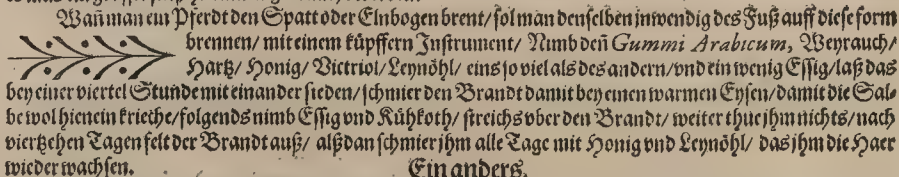 Wañ man ein Pferdt den Spatt oder Elnbogen brent/ sol man denselben inwendig des Fuß auff diese form
brennen/ mit einem küpffern Instrument/ Nimb deñ Gummi Arabicum, Weyrauch/
Hartz/ Honig/ Victriol/ Leynöhl/ eins so viel als des andern/ vnd ein wenig Essig/ laß das
bey einer viertel Stunde mit einander sieden/ schmier den Brandt damit bey einen warmen Eysen/ damit die Sal-
be wol hienein krieche/ folgends nimb Essig vnd Kühkoth/ streichs vber den Brandt/ weiter thue ihm nichts/ nach
viertzehen Tagen felt der Brandt auß/ alß dan schmier ihm alle Tage mit Honig vnd Leynöhl/ das ihm die Haer
wieder wachsen.
Ein anders.